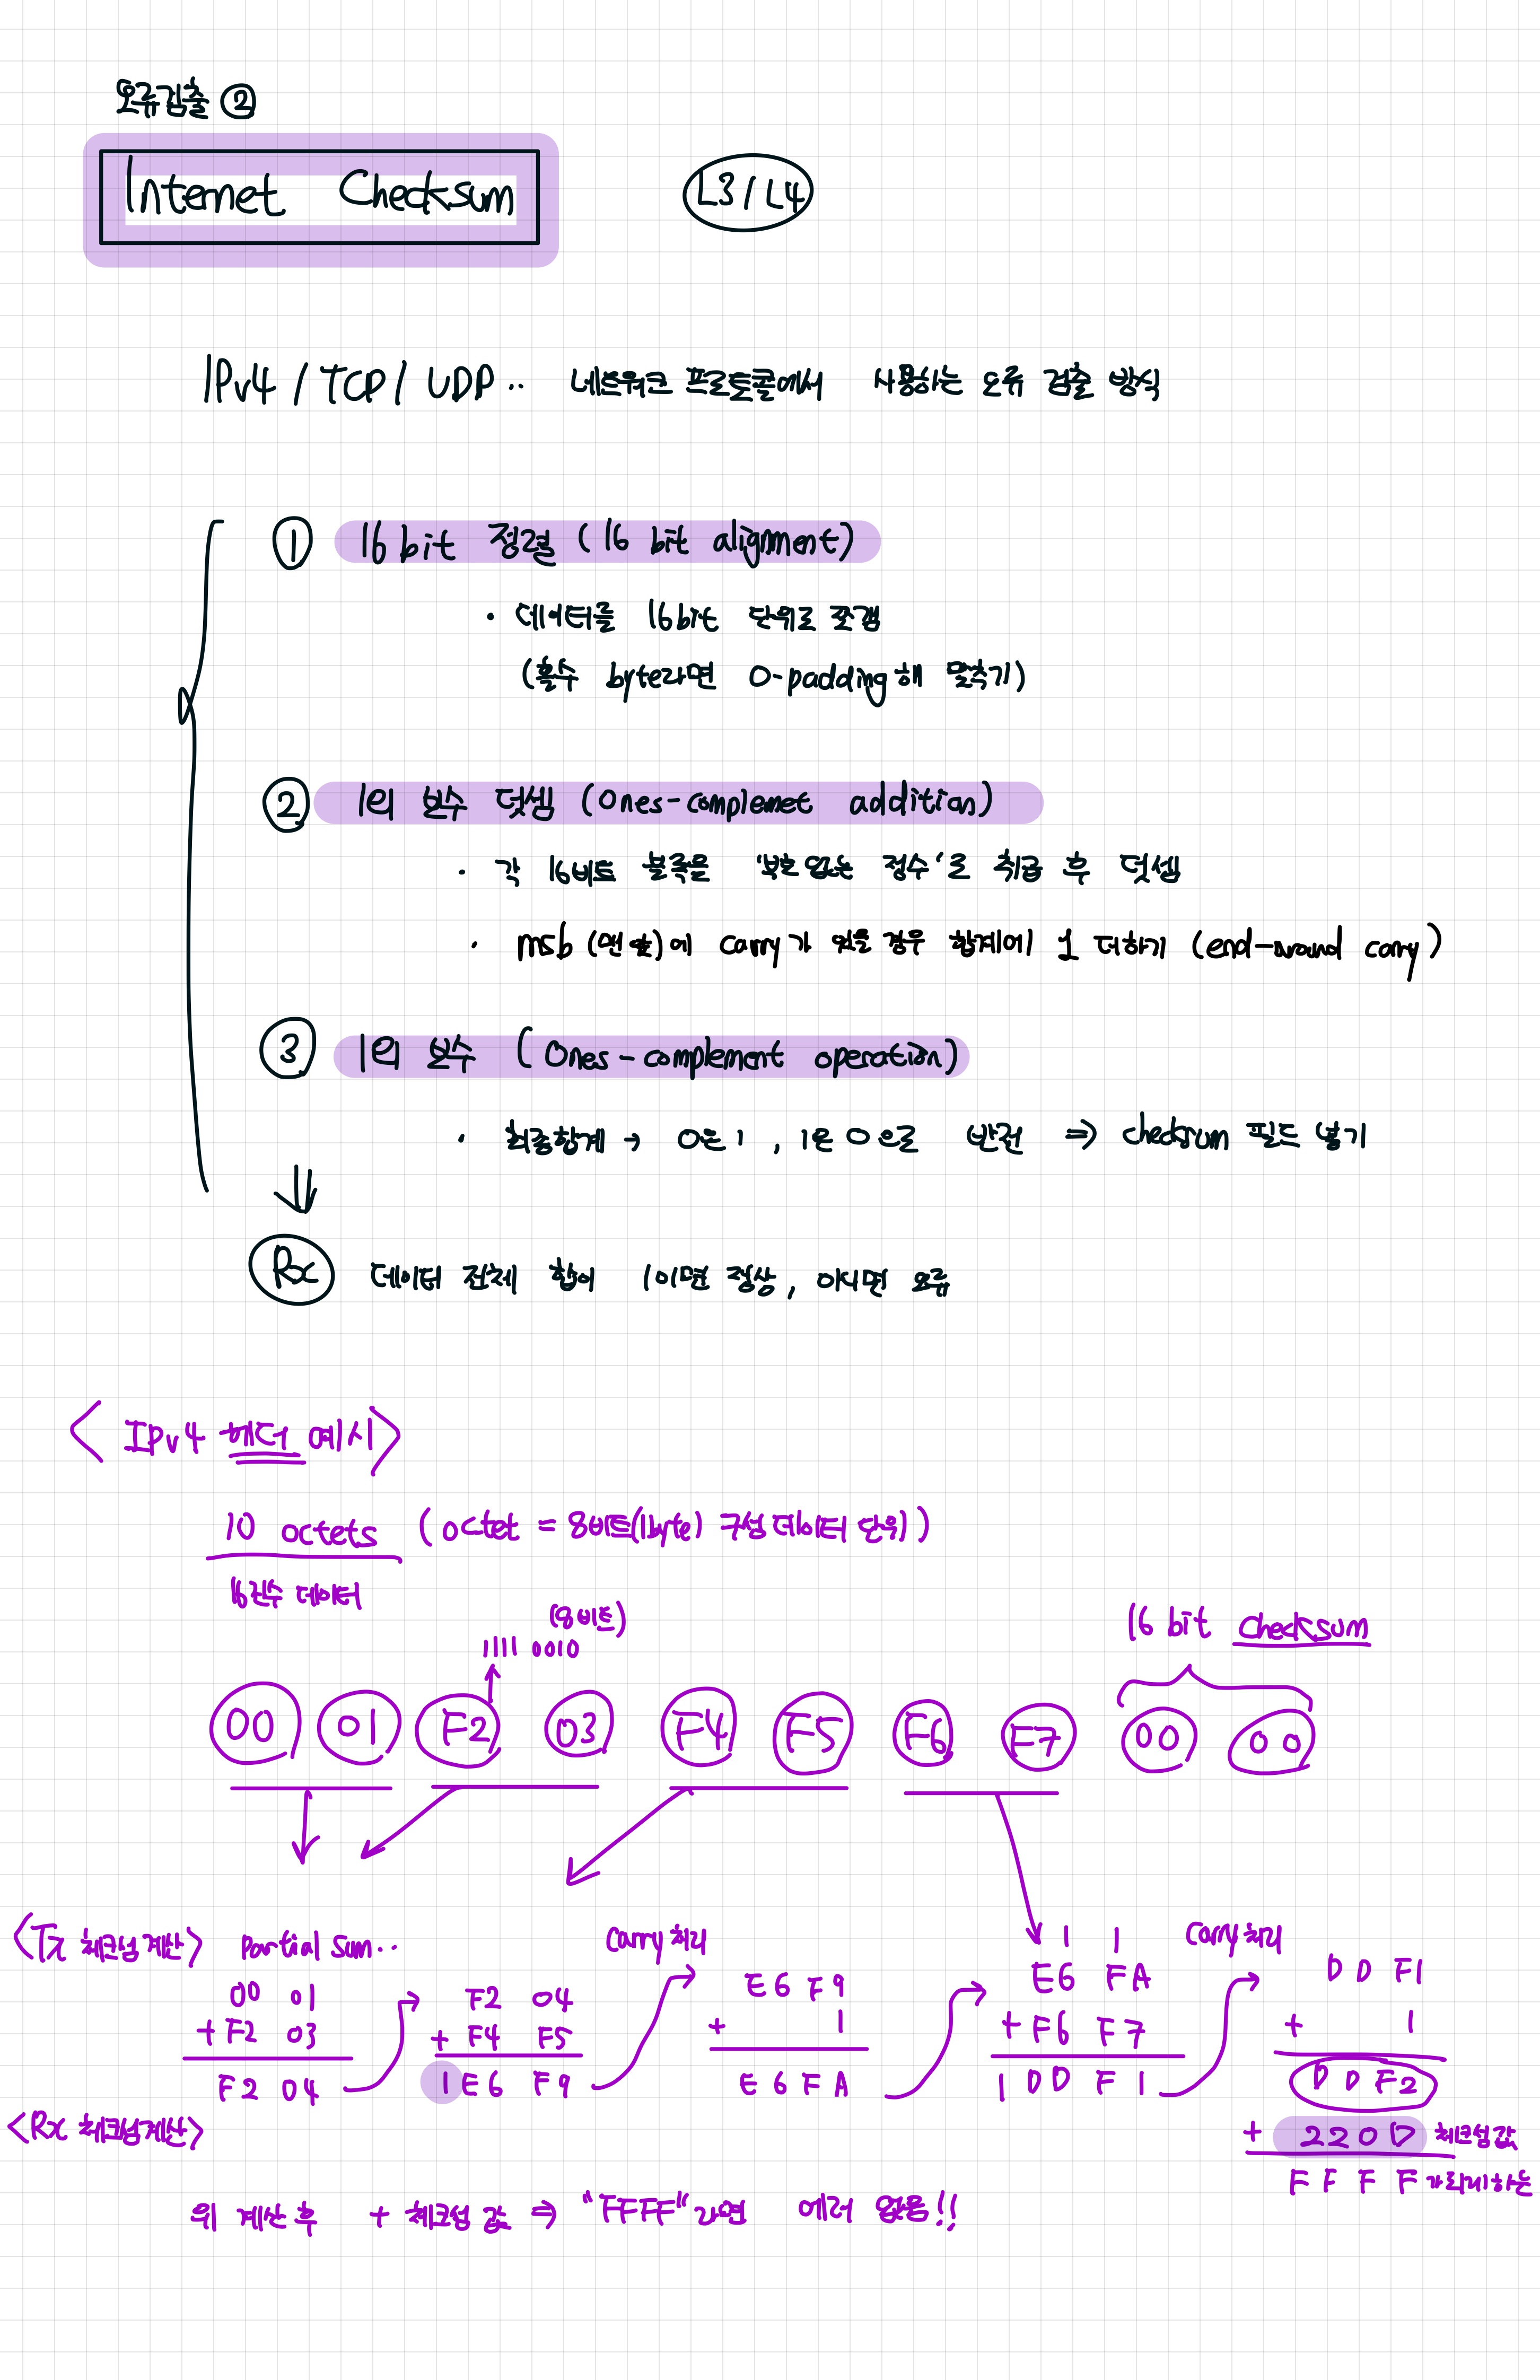 오류검출 ②
Internet Checksum
L3/L4
IPv4 / TCP / UDP.. 네트워크 프로토콜에서 사용하는 오류 검출 방식
① 16 bit 정렬 (16 bit alignment)
· 데이터를 16bit 단위로 쪼갬
(홀수 byte라면 0-padding해 맞추기)
② 1의 보수 덧셈 (Ones-complemet addition)
· 각 16비트 블록을 '부호없는 정수'로 취급 후 덧셈
· msb (맨 앞)에 carry가 있을 경우 합계에 1 더하기 (end-around carry)
③ 1의 보수 (Ones-complement operation)
· 최종합계 → 0은 1, 1은 0으로 반전 ⇒ checksum 필드 넣기
Rx 데이터 전체 합이 1이면 정상, 아니면 오류
<IPv4 헤더 예시>
10 octets (octet = 8비트(1byte) 구성 데이터 단위)
16진수 데이터
(8비트)
1111 0010
16 bit checksum
00 01 F2 03 F4 F5 F6 F7 00 00
<Tx 체크섬계산> Partial sum.. Carry 처리 Carry 처리
1 1
00 01 F2 04 E6 F9 E6 FA DD F1
+ F2 03 + F4 F5 + 1 + F6 F7 + 1
F2 04 1 E6 F9 E6 FA 1 DD F1 DDF2
<Rx 체크섬계산>
+ 220D 체크섬값
F F F F 가 되게 하는
위 계산 후 + 체크섬 값 ⇒ "FFFF"라면 에러 없음!!